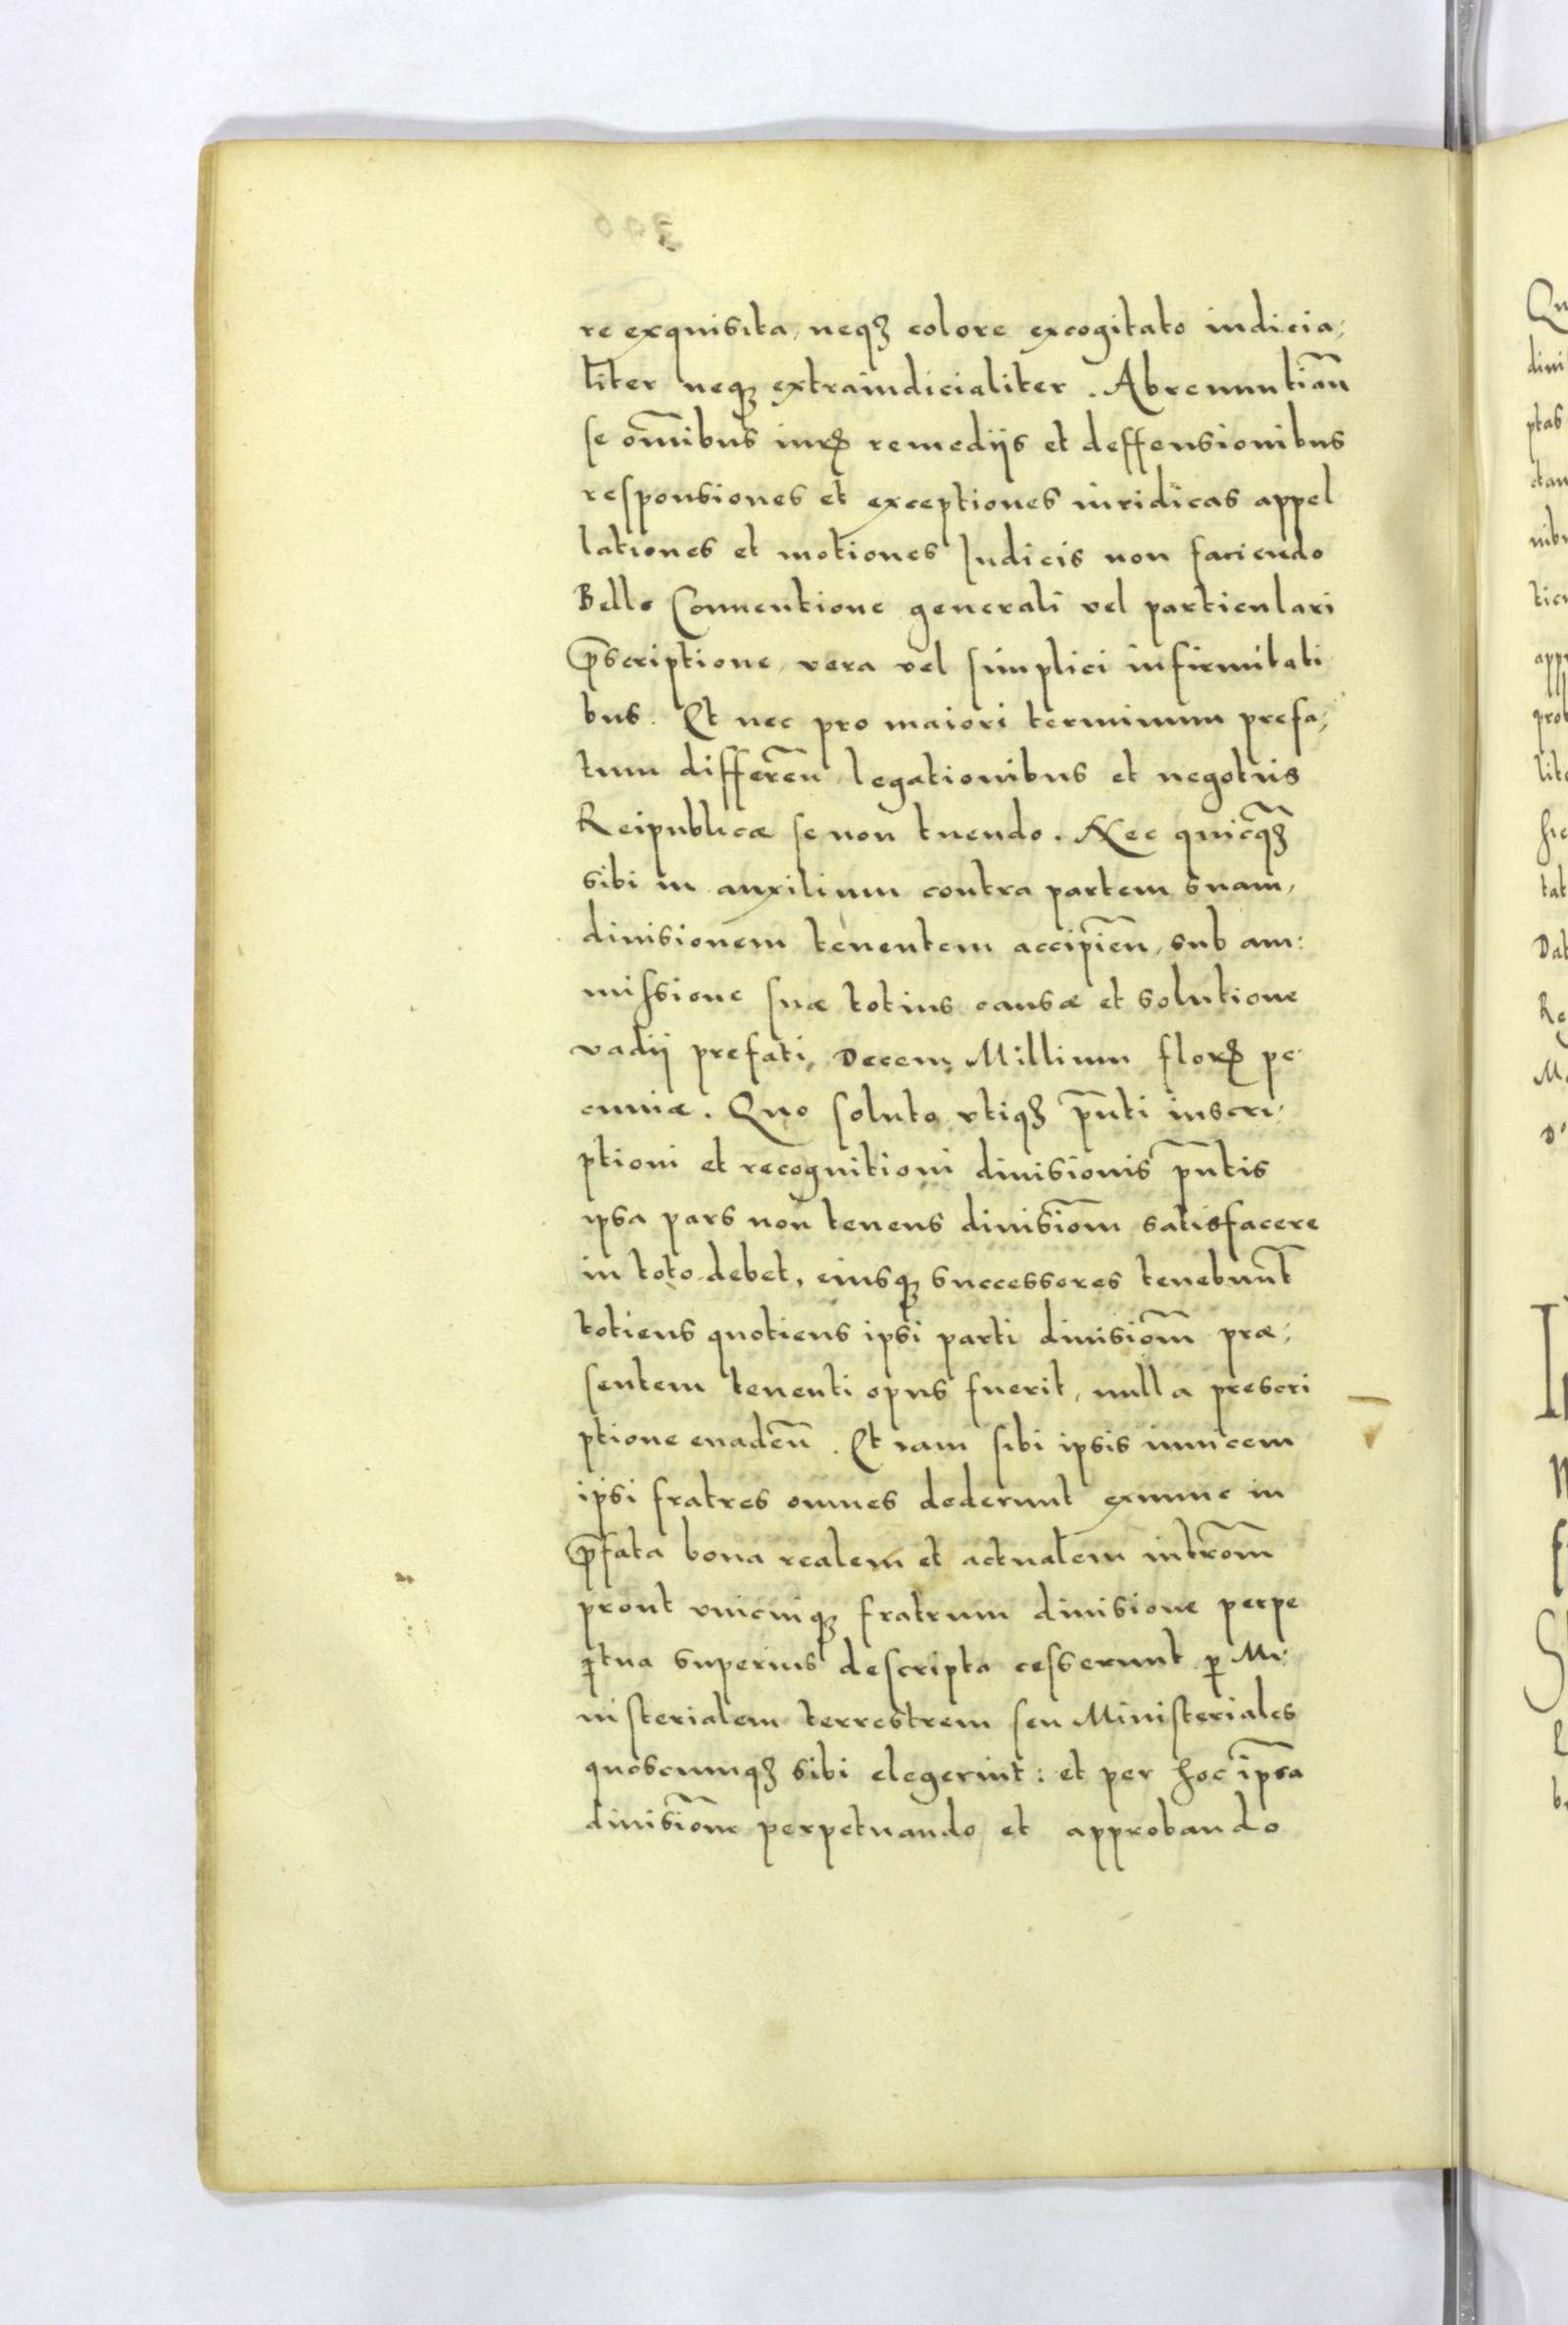 re exquisita, neqꝫ colore excogitato iudicia,
liter neqꝫ extraiudicialiter. Abrenuntiañ
se om̃ibus iurꝭ remedijs et deffensionibus
responsiones et exceptiones iuridicas appel
lationes et motiones Iudicis non faciendo
Bello Conuentione generali vel particulari
p̃scriptione, vera vel simplici infirmitati
bus. Et nec pro maiori terminum prefa,
tum differeñ legationibus et negotiis
Reipublicæ se non tuendo. Nec quicq̃ꝫ
sibi in auxilium contra partem suam,
diuisionem tenentem accipieñ, sub am:
missione suæ totius causæ et solutione
vadij prefati, Decem Millium florꝭ pe
cuniæ. Quo soluto, vtiqꝫ p̃nti inscri,
ptioni et recognitioni diuisionis p̃ntis
ipsa pars non tenens diuisiom̃ satisfacere
in toto debet, eiusqꝫ successores tenebunt̃
totiens quotiens ipsi parti diuisiom̃ præ,
sentem tenenti opus fuerit, nulla prescri
ptione euadeñ. Et iam sibi ipsis inuicem
ipsi fratres omnes dederunt exnunc in
p̃fata bona realem et actualem introm̃
prout vnicuiqꝫ fratrum diuisione perpe
tua superius descripta cesserunt ꝑ Mi:
nisterialem terrestrem seu Ministeriales
quoscunqꝫ sibi elegerint: et per hoc ip̃sa
diuisiõne perpetuando et approbando